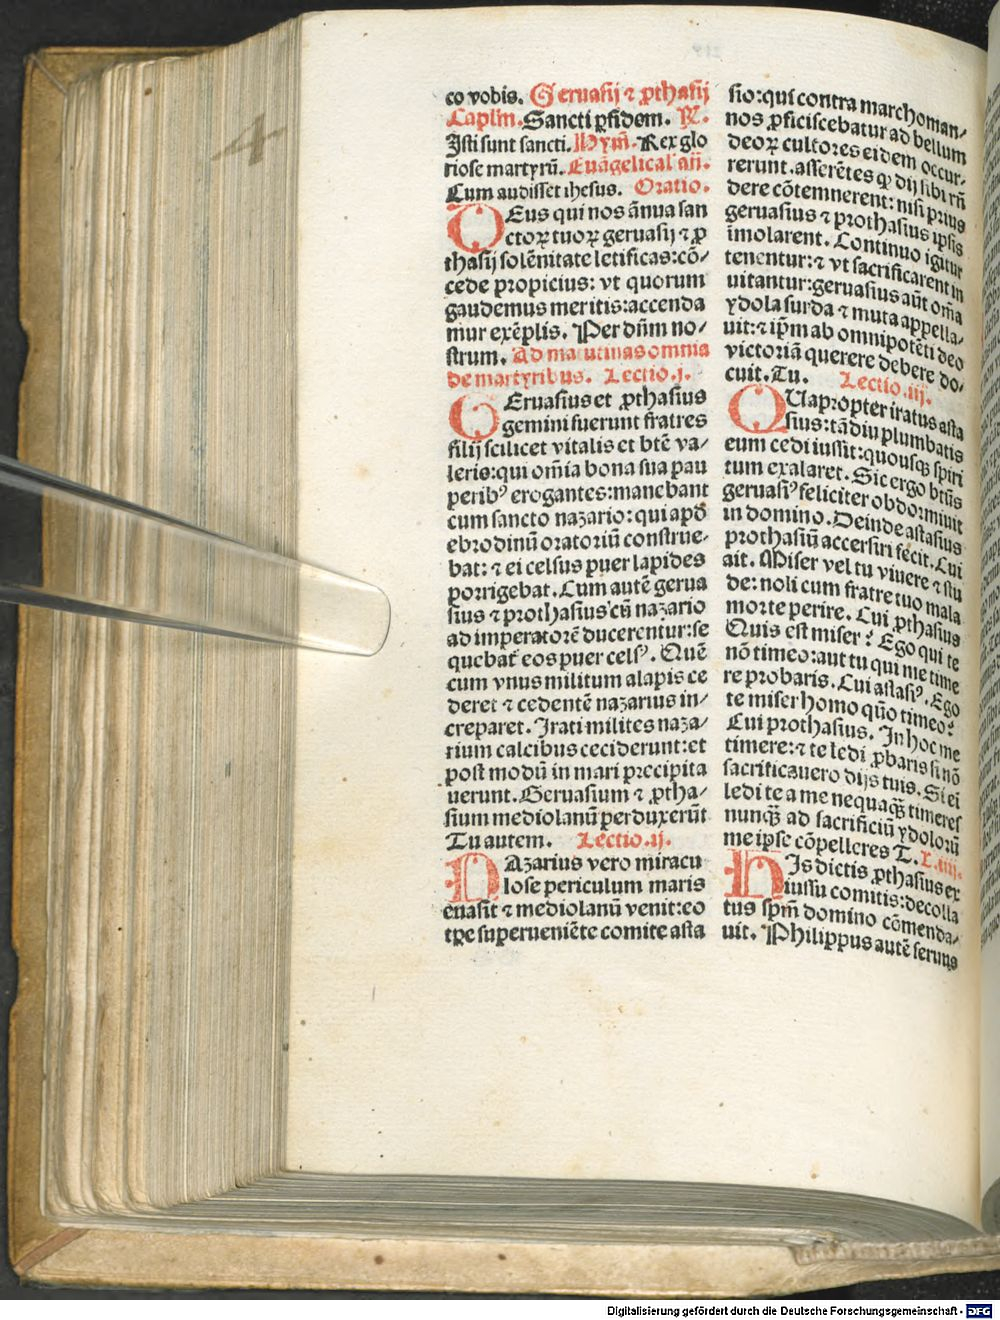 co vobis. Geruasij ⁊ ꝓthasij
Caplm̄. Sancti ꝑ fidem. ℟.
Isti sunt sancti. Hym̄. Rex glo
riose martyrū. Euāgelical añ.
Cum audisset ihesus. Oratio.
DEus qui nos ānua san
ctoꝝ tuoꝝ geruasij ⁊ ꝓ
thasij solēnitate letificas: cō⸗
cede propicius: vt quorum
gaudemus meritis: accenda
mur exēplis. Per dn̄m no⸗
strum. Ad matutinas omnia
de martyribus. Lectio.j.
GEruasius et ꝓthasius
gemini fuerunt fratres
filij scilicet vitalis et btē va⸗
lerie: qui om̄ia bona sua pau
peribꝰ erogantes: manebant
cum sancto nazario: qui apd̄
ebrodinū oratoriū construe⸗
bat: ⁊ ei celsus puer lapides
porrigebat. Cum autē gerua
sius ⁊ prothasius cū nazario
ad imperatorē ducerentur: se
quebat̄ eos puer celsꝰ. Quē
cum vnus militum alapis ce
deret ⁊ cedentē nazarius in⸗
creparet. Irati milites naza⸗
rium calcibus ceciderunt: et
post modū in mari precipita
uerunt. Geruasium ⁊ ꝓtha⸗
sium mediolanū perduxerūt
Tu autem. Lectio.ij.
NAzarius vero miracu
lose periculum maris
euasit ⁊ mediolanū venit: eo
tꝑe superueniēte comite asta
sio: qui contra marchoman⸗
nos ꝓficiscebatur ad bellum
deoꝝ cultores eidem occur⸗
rerunt. asserētes ꝙ dij sibi rn̄
dere cōtemnerent: nisi prius
geruasius ⁊ prothasius ipsis
īmolarent. Continuo igitur
tenentur: ⁊ vt sacrificarent in
uitantur: geruasius aūt om̄a
ydola surda ⁊ muta appella⸗
uit: ⁊ ip̄m ab omnipotēti deo
victoriā querere debere do⸗
cuit. Tu. Lectio.iij.
QUapropter iratus asta
sius: tādiu plumbatis
eum cedi iussit: quousqꝫ spiri
tum exalaret. Sic ergo btūs
geruasiꝰ feliciter obdormiuit
in domino. Deinde astasius
prothasiū accersiri fecit. Cui
ait. Miser vel tu viuere ⁊ stu
de: noli cum fratre tuo mala
morte perire. Cui ꝓthasius
Quis est miser? Ego qui te
nō timeo: aut tu qui me time
re probaris. Cui astasiꝰ. Ego
te miser homo quō timeo?
Cui prothasius. In hoc me
timere: ⁊ te ledi ꝓbaris si nō
sacrificauero dijs tuis. Si ei
ledi te a me nequaqꝫ timeres
nunqꝫ ad sacrificiū ydoloꝝ
me ipse cōpelleres T. L.iiij.
HIs dictis ꝓthasius ex
iussu comitis: decolla
tus spm̄ domino cōmenda⸗
uit. Philippus autē seruus
Digitalisierung gefördert durch die Deutsche Forschungsgemeinschaft - DFG